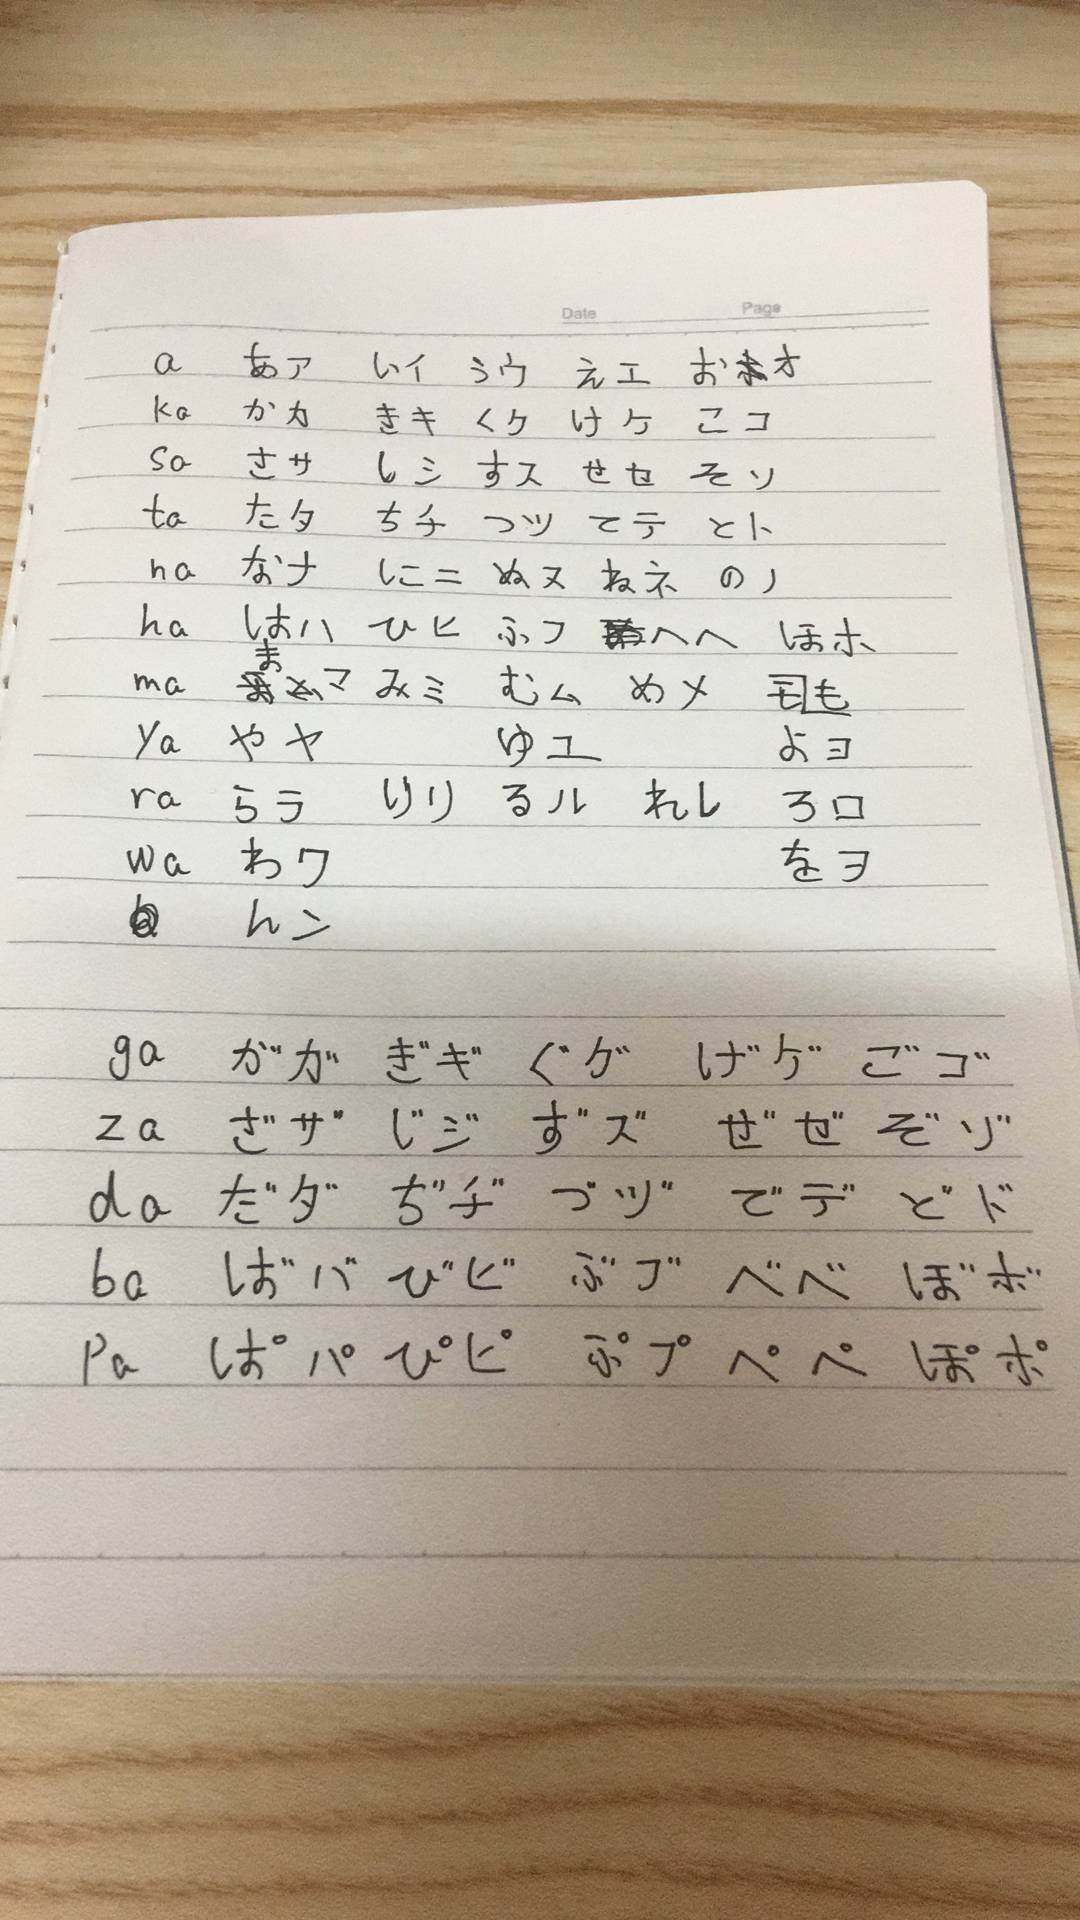 Date Page
a あア いイ うウ えエ おオ
ka かカ きキ くク けケ こコ
sa さサ しシ すス せセ そソ
ta たタ ちチ つツ てテ とト
na なナ にニ ぬヌ ねネ のノ
ha はハ ひヒ ふフ へヘ ほホ
ma まマ みミ むム めメ モも
ya やヤ ゆユ よヨ
ra らラ りリ るル れレ ろロ
wa わワ をヲ
んン
ga がガ ぎギ ぐグ げゲ ごゴ
za ざザ じジ ずズ ぜゼ ぞゾ
da だダ ぢヂ づヅ でデ どド
ba ばバ びビ ぶブ べベ ぼボ
Pa ぱパ ぴピ ぷプ ぺペ ぽポ